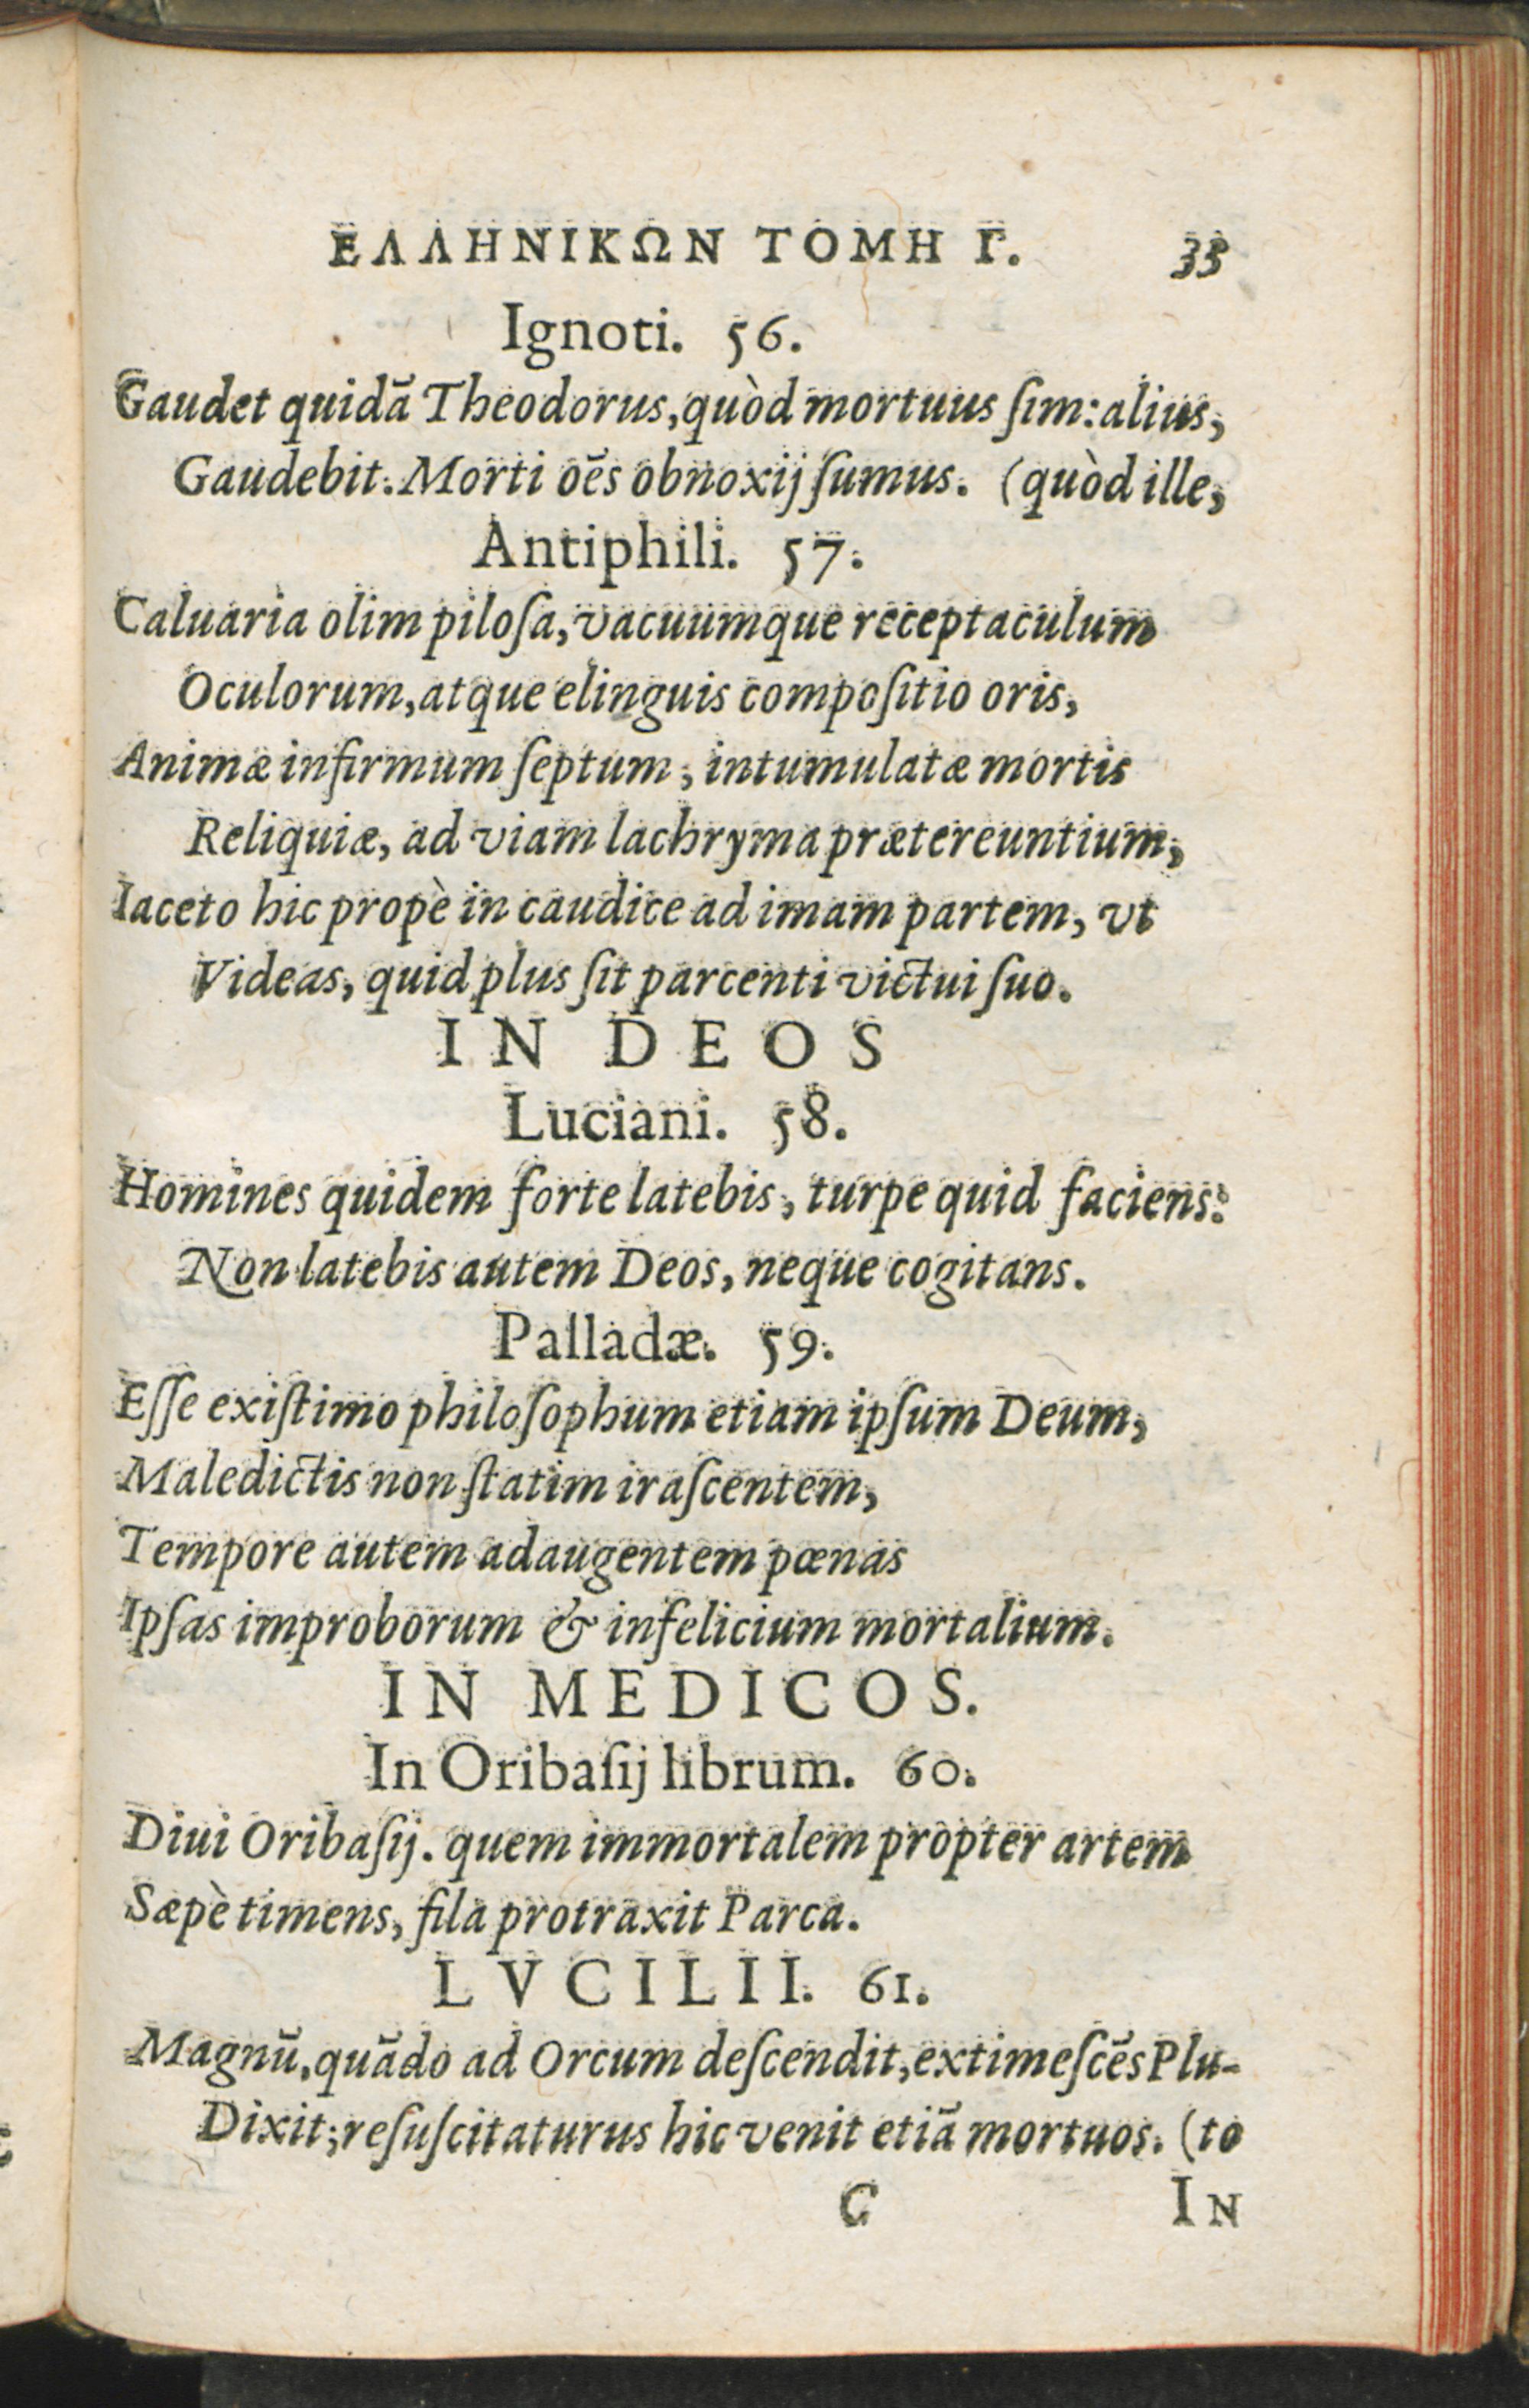 ΕΛΛΗΝΙΚΩΝ ΤΟΜΗ Γ. 33
Ignoti. 56.
Gaudet quidã Theodorus, quòd mortuus ſim: alius,
Gaudebit. Morti oẽs obnoxij ſumus. (quòd ille,
Antiphili. 57.
Caluaria olim piloſa, vacuumque receptaculum
Oculorum, atque elinguis compoſitio oris,
Animæ infirmum ſeptum, intumulatæ mortis
Reliquiæ, ad viam lachryma prætereuntium,
Iaceto hic propè in caudice ad imam partem, vt
Videas, quid plus ſit parcenti victui ſuo.
IN DEOS
Luciani. 58.
Homines quidem forte latebis, turpe quid faciens:
Non latebis autem Deos, neque cogitans.
Palladæ. 59.
Eſſe exiſtimo philoſophum etiam ipſum Deum,
Maledictis non ſtatim iraſcentem,
Tempore autem adaugentem pœnas
Ipſas improborum & infelicium mortalium.
IN MEDICOS.
In Oribaſij librum. 60.
Diui Oribaſij. quem immortalem propter artem
Sæpè timens, fila protraxit Parca.
LVCILII. 61.
Magnũ, quãdo ad Orcum deſcendit, extimeſcẽs Plu-
Dixit; reſuſcitaturus hic venit etiã mortuos. (to
C IN